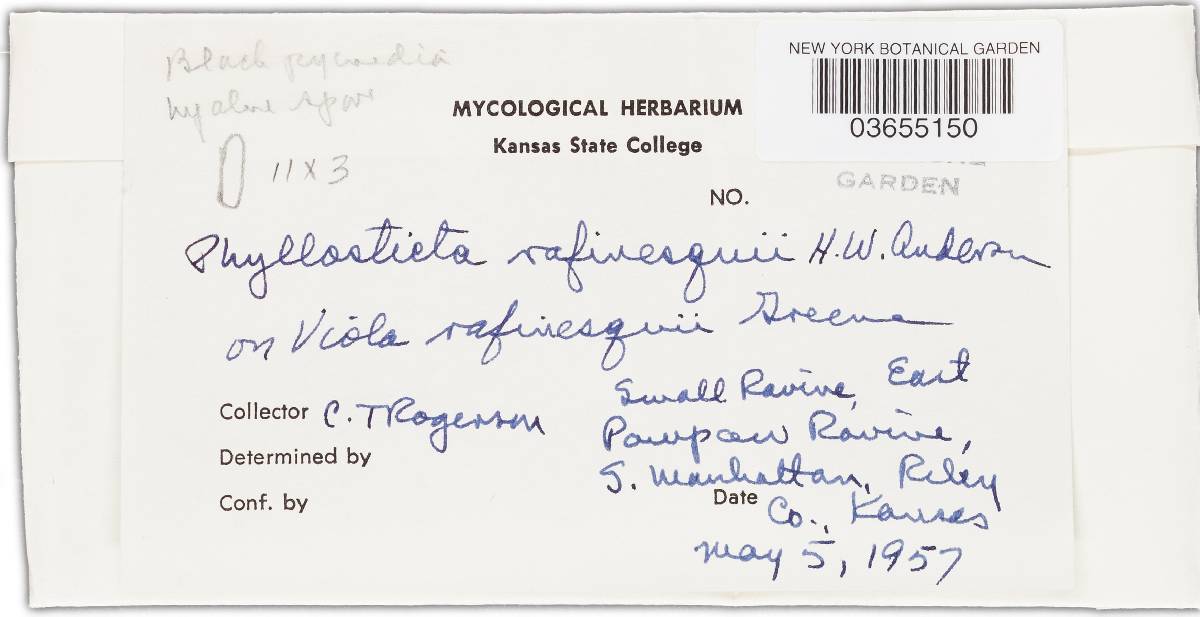 Black pycnidia
hyaline spor
11 x 3
NEW YORK BOTANICAL GARDEN
03655150
GARDEN
MYCOLOGICAL HERBARIUM
Kansas State College
NO.
Phyllosticta rafinesquii H.W. Anderson
on Viola rafinesquii Greene
Small Ravine, East
Collector C. T Rogerson
Pawpaw Ravine,
Determined by
S. Manhattan, Riley
Conf. by
Date Co., Kansas
May 5, 1957